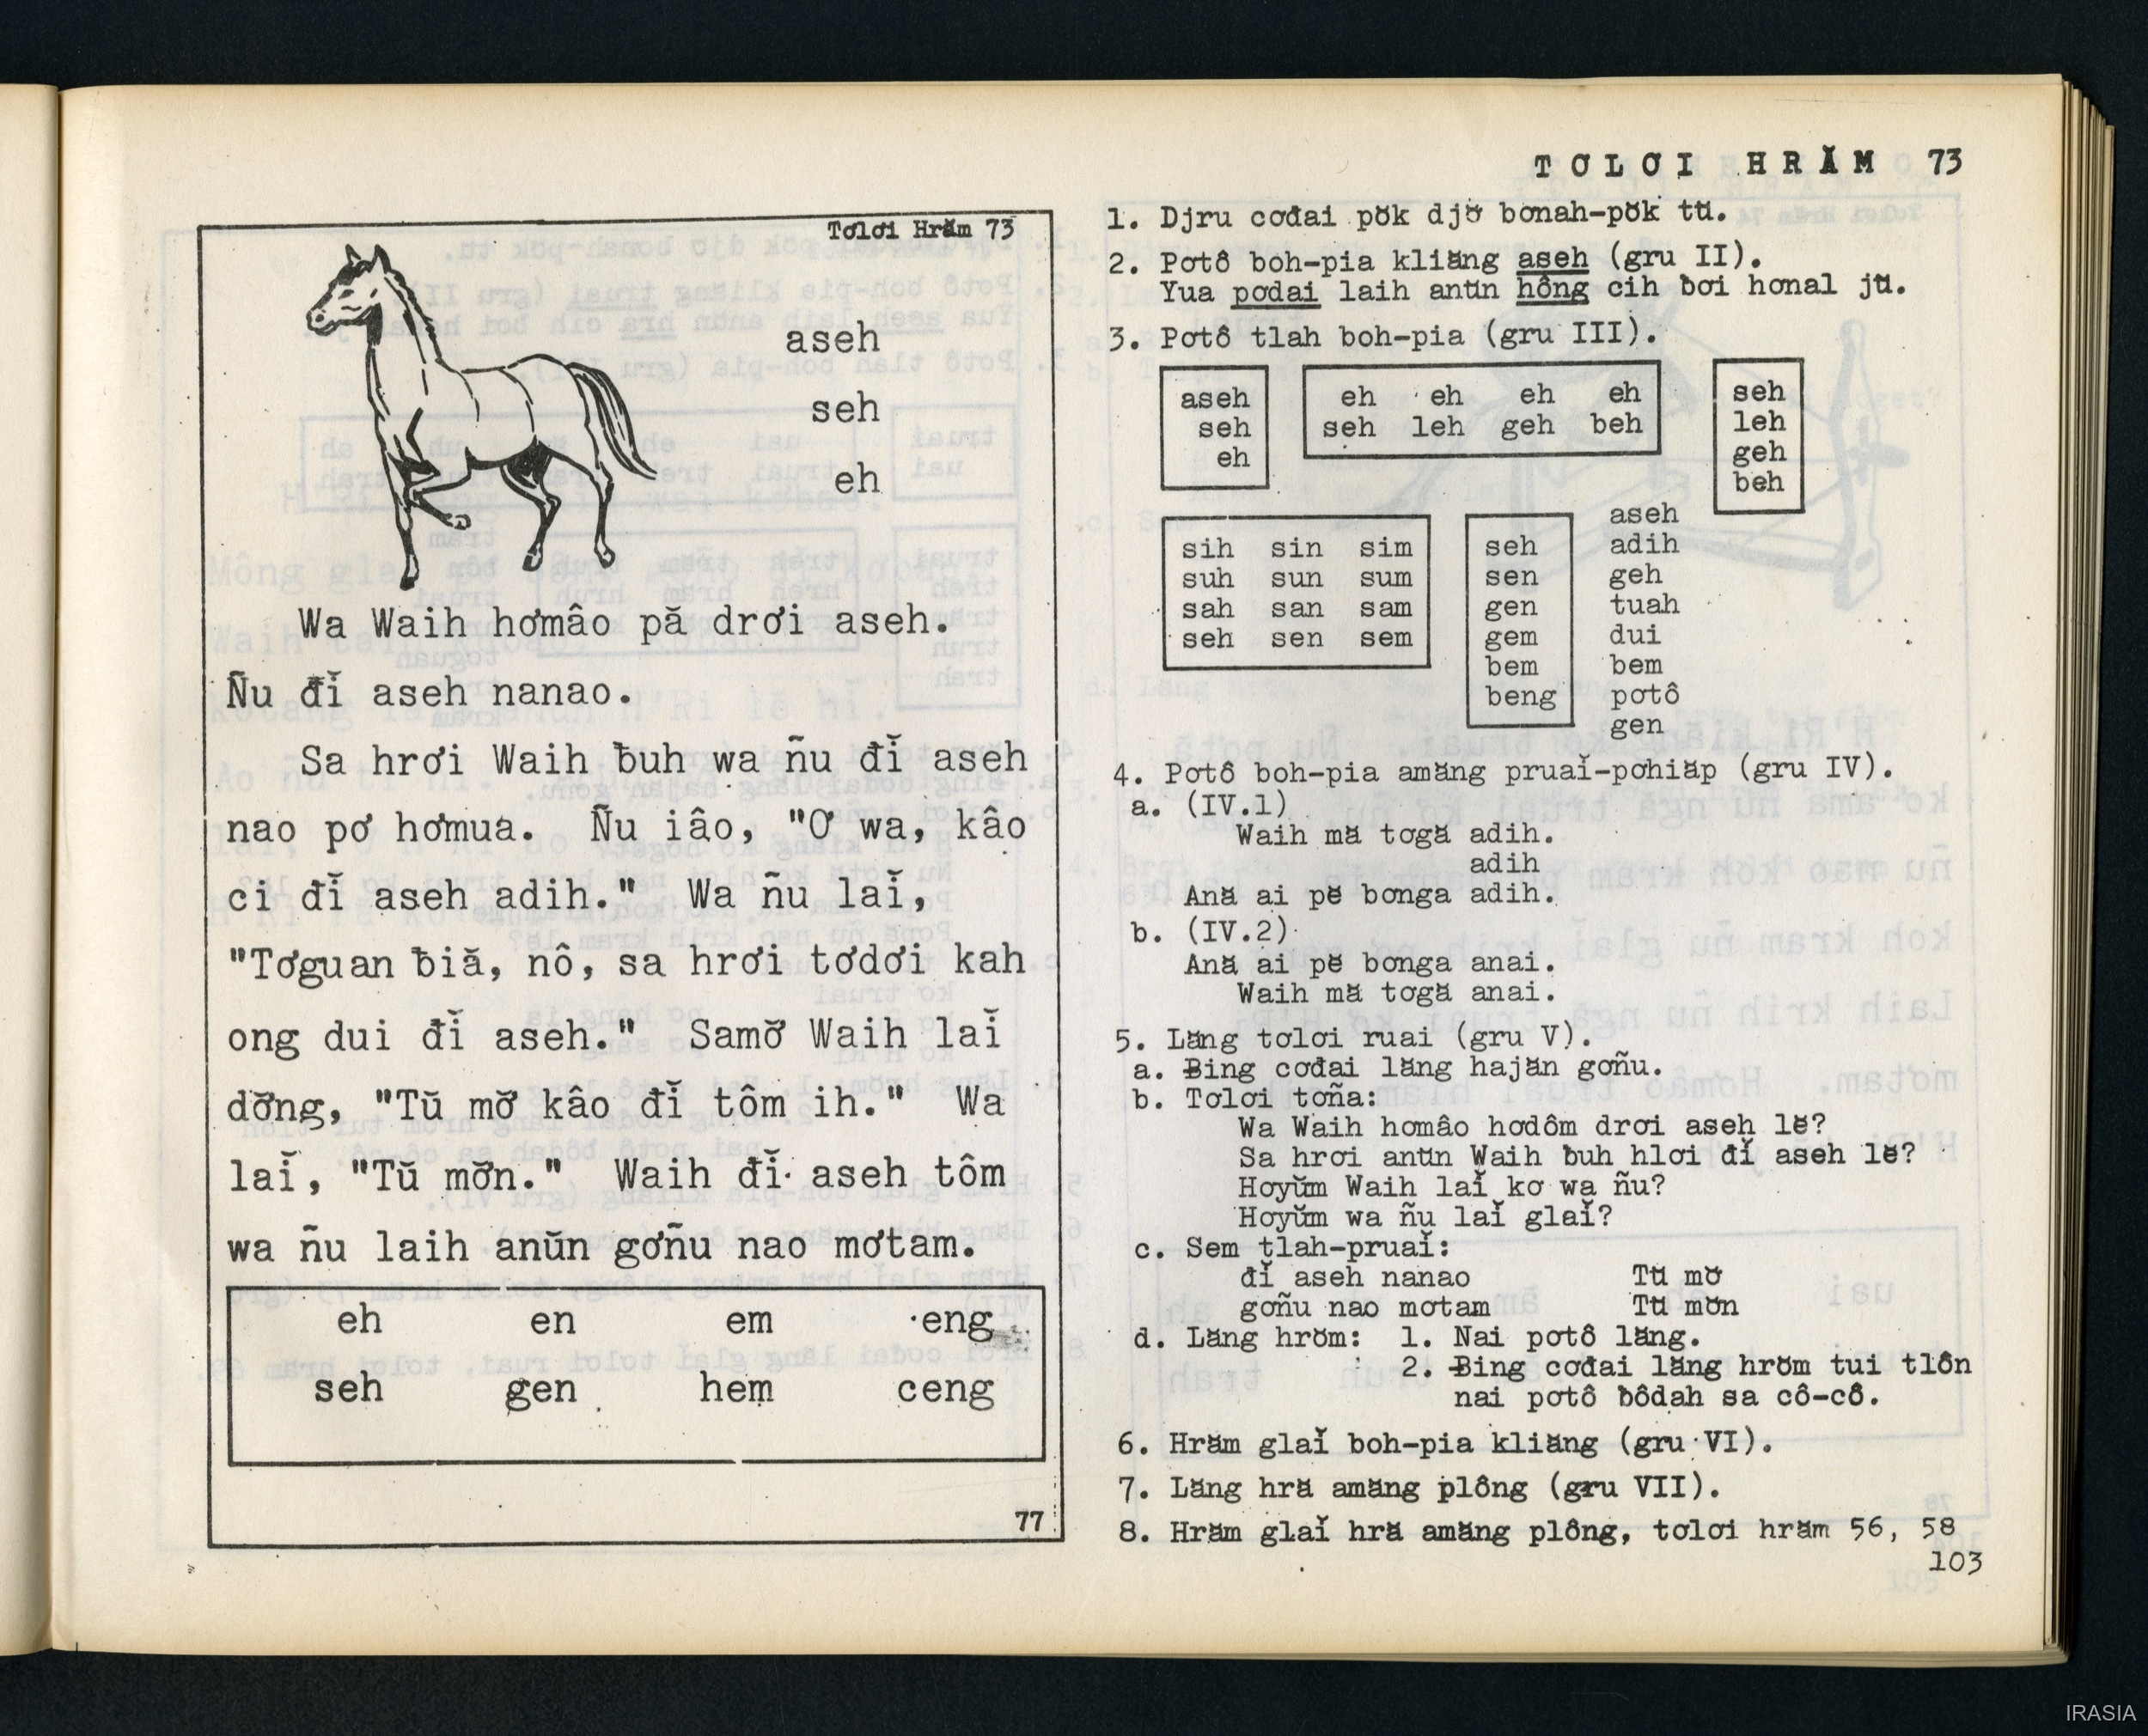 Tơlơi Hrăm 73
aseh
seh
eh
Wa Waih hơmâo pă drơi aseh.
Ñu đĭ aseh nanao.
Sa hrơi Waih ƀuh wa ñu đĭ aseh
nao pơ hơmua. Ñu iâo, "Ơ wa, kâo
ci đĭ aseh adih." Wa ñu laĭ,
"Tơguan ƀiă, nô, sa hrơi tơdơi kah
ong dui đĭ aseh." Samơ̆ Waih laĭ
dơ̆ng, "Tŭ mơ̆ kâo đĭ tôm ih." Wa
laĭ, "Tŭ mơ̆n." Waih đĭ aseh tôm
wa ñu laih anŭn gơñu nao mơtam.
eh en em eng
seh gen hem ceng
77
TƠLƠI HRĂM 73
1. Djru cơđai pŏk djơ̆ bơnah-pŏk tŭ.
2. Pơtô boh-pia kliăng aseh (gru II).
Yua pơdai laih anŭn hông cih ƀơi hơnal jŭ.
3. Pơtô tlah boh-pia (gru III).
aseh
seh
eh
eh eh eh eh
seh leh geh beh
seh
leh
geh
beh
sih sin sim
suh sun sum
sah san sam
seh sen sem
seh
sen
gen
gem
bem
beng
aseh
adih
geh
tuah
dui
bem
pơtô
gen
4. Pơtô boh-pia amăng pruaĭ-pơhiăp (gru IV).
a. (IV.1)
Waih mă tơgă adih.
adih
Ană ai pĕ bơnga adih.
b. (IV.2)
Ană ai pĕ bơnga anai.
Waih mă tơgă anai.
5. Lăng tơlơi ruai (gru V).
a. Ƀing cơđai lăng hajăn gơñu.
b. Tơlơi tơña:
Wa Waih hơmâo hơdôm drơi aseh lĕ?
Sa hrơi anŭn Waih ƀuh hlơi đĭ aseh lĕ?
Hơyŭm Waih laĭ kơ wa ñu?
Hơyŭm wa ñu laĭ glaĭ?
c. Sem tlah-pruaĭ:
đĭ aseh nanao Tŭ mơ̆
gơñu nao mơtam Tŭ mơ̆n
d. Lăng hrŏm: 1. Nai pơtô lăng.
2. Ƀing cơđai lăng hrŏm tui tlôn
nai pơtô ƀôdah sa cô-cô.
6. Hrăm glaĭ boh-pia kliăng (gru VI).
7. Lăng hră amăng plông (gru VII).
8. Hrăm glaĭ hră amăng plông, tơlơi hrăm 56, 58
103
IRASIA